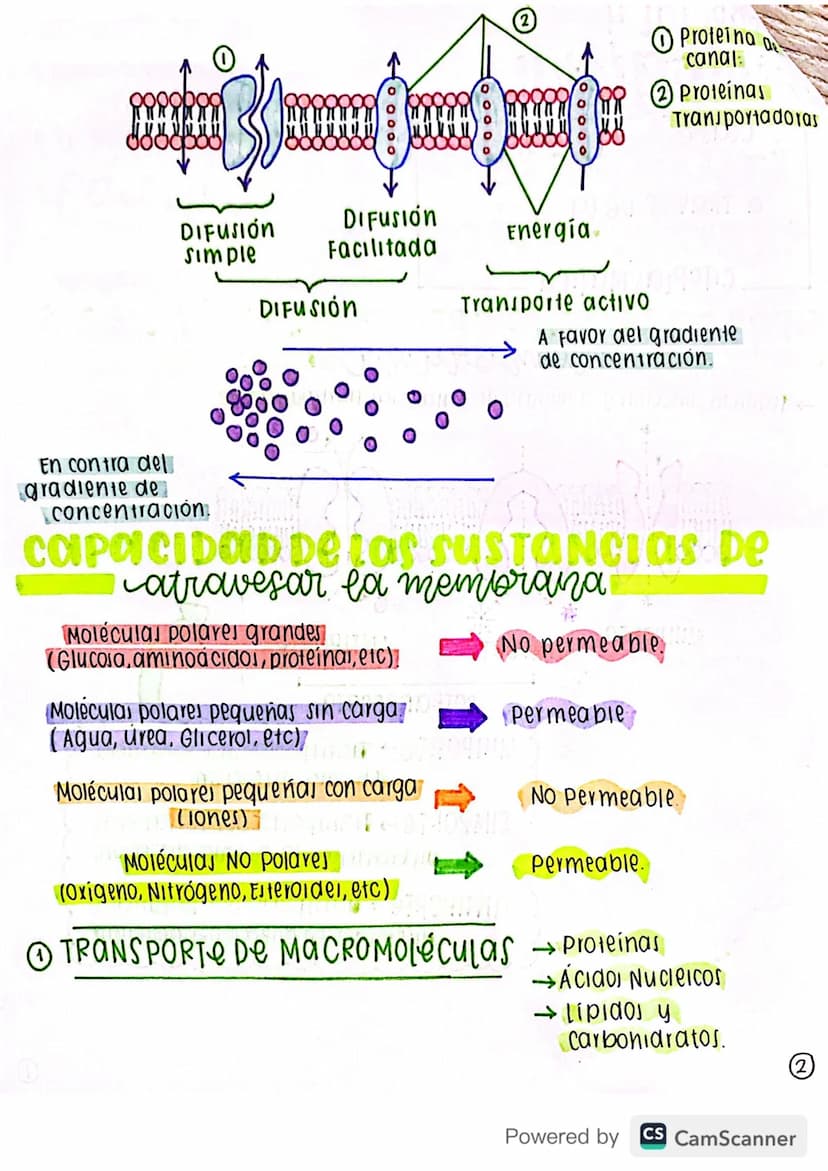 ①
②
① Proteína de
canal.
② Proteínas
Transportadoras
Difusión
simple
Difusión
Facilitada
Energía.
Difusión
Transporte activo
A favor del gradiente
de concentración.
En contra del
gradiente de
concentración.
CAPACIDAD DE LAS SUSTANCIAS DE
atravesar la membrana
Moléculas polares grandes
(Glucosa, aminoácidos, proteínas, etc).
No permeable.
Moléculas polares pequeñas sin carga
(Agua, úrea, Glicerol, etc)
Permeable
Moléculas polares pequeñas con carga
(iones)
No permeable.
Moléculas No Polares
(oxígeno, Nitrógeno, Esteroides, etc)
Permeable.
① TRANSPORTE DE MACROMOLÉCULAS
→ Proteínas
→ Ácidos Nucleicos
→ Lípidos y
carbohidratos.
②
Powered by CS CamScanner